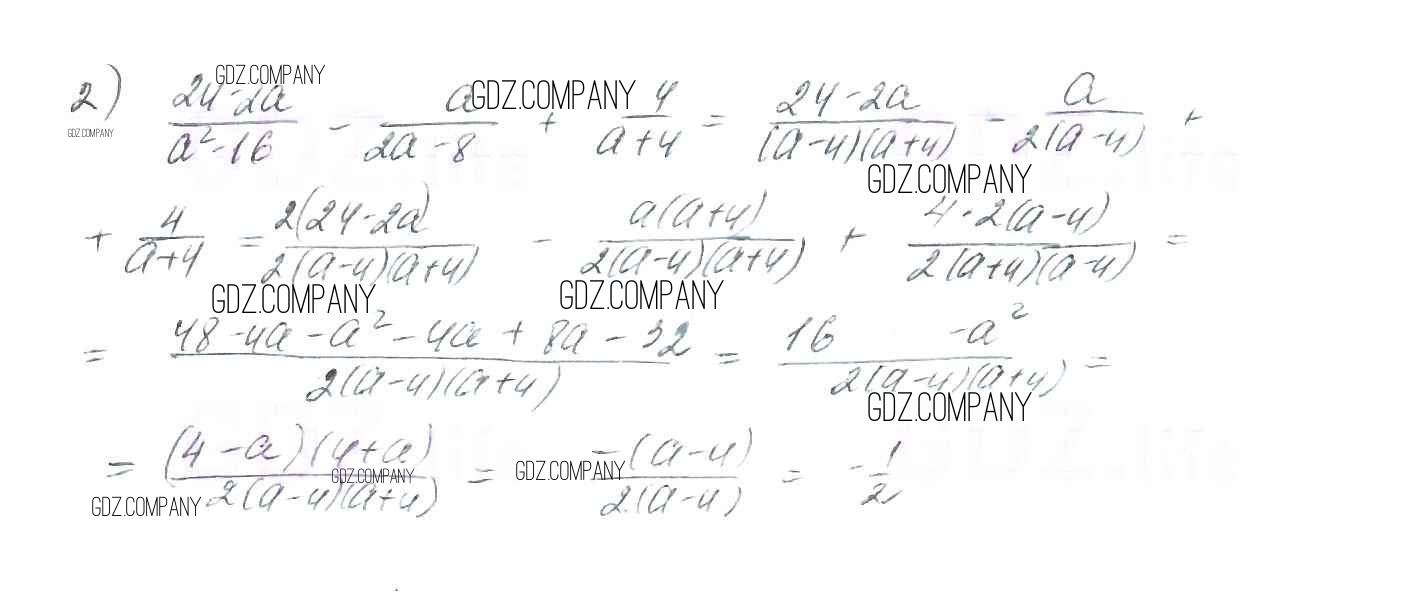 GDZ.COMPANY
2) (24-2a)/(a²-16) - a/(2a-8) + 4/(a+4) = (24-2a)/((a-4)(a+4)) - a/(2(a-4)) +
GDZ.COMPANY GDZ.COMPANY
GDZ.COMPANY
+ 4/(a+4) = 2(24-2a)/(2(a-4)(a+4)) - a(a+4)/(2(a-4)(a+4)) + 4·2(a-4)/(2(a+4)(a-4)) =
GDZ.COMPANY GDZ.COMPANY
= (48-4a-a²-4a+8a-32)/(2(a-4)(a+4)) = (16 -a²)/(2(a-4)(a+4)) =
GDZ.COMPANY
= (4-a)(4+a)/(2(a-4)(a+4)) = -(a-4)/(2(a-4)) = -1/2
GDZ.COMPANY GDZ.COMPANY GDZ.COMPANY